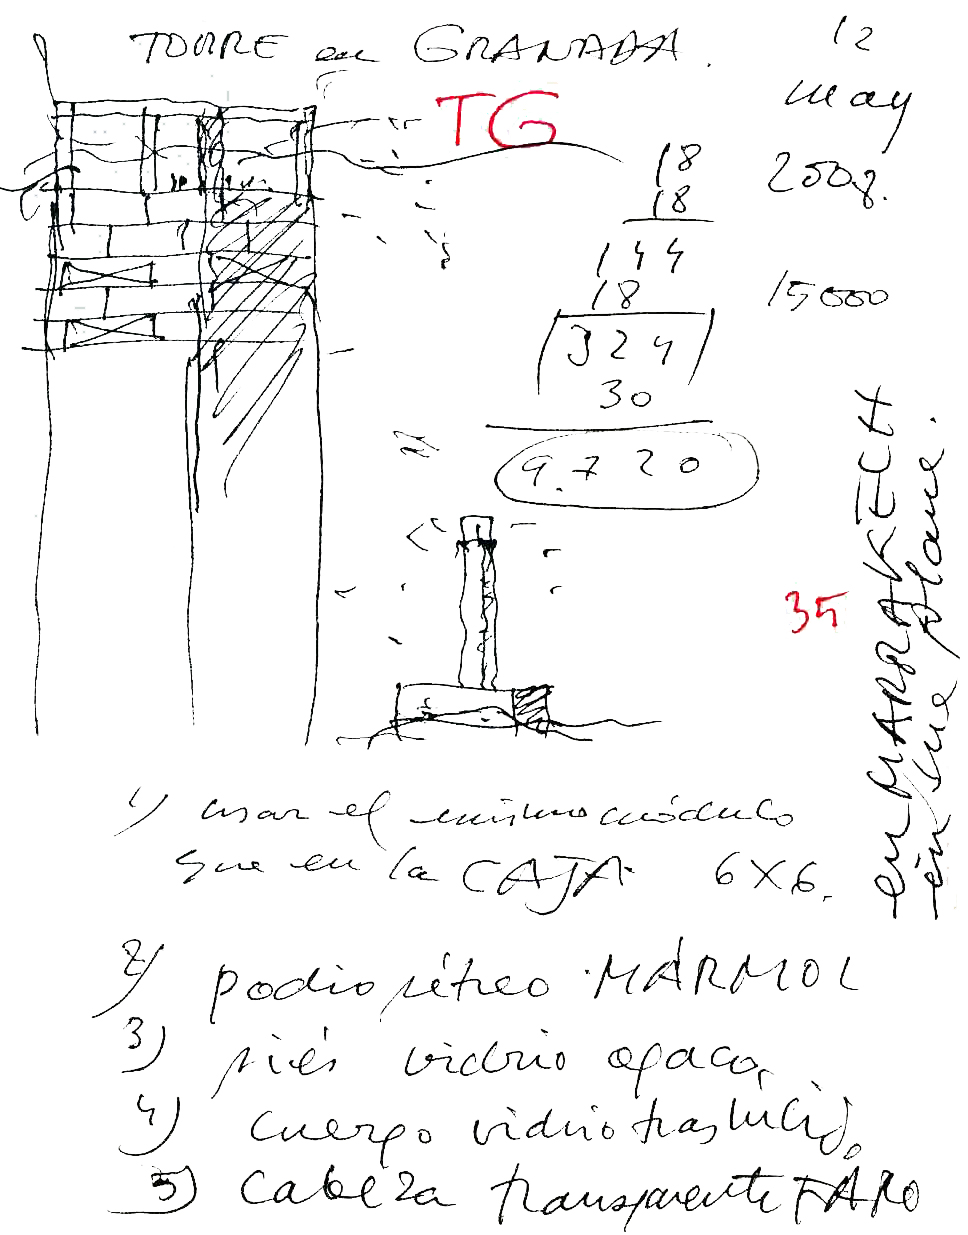 TORRE en GRANADA.
12
may
2008.
TG
18
18
144
18
324
30
9.720
15000
35
en MARRAKECH
en une place.
1) usar el mismo módulo
que en la CAJA 6X6.
2) podio pétreo · MÁRMOL
3) piés vidrio opaco,
4) cuerpo vidrio traslúcido,
5) cabeza transparente FARO